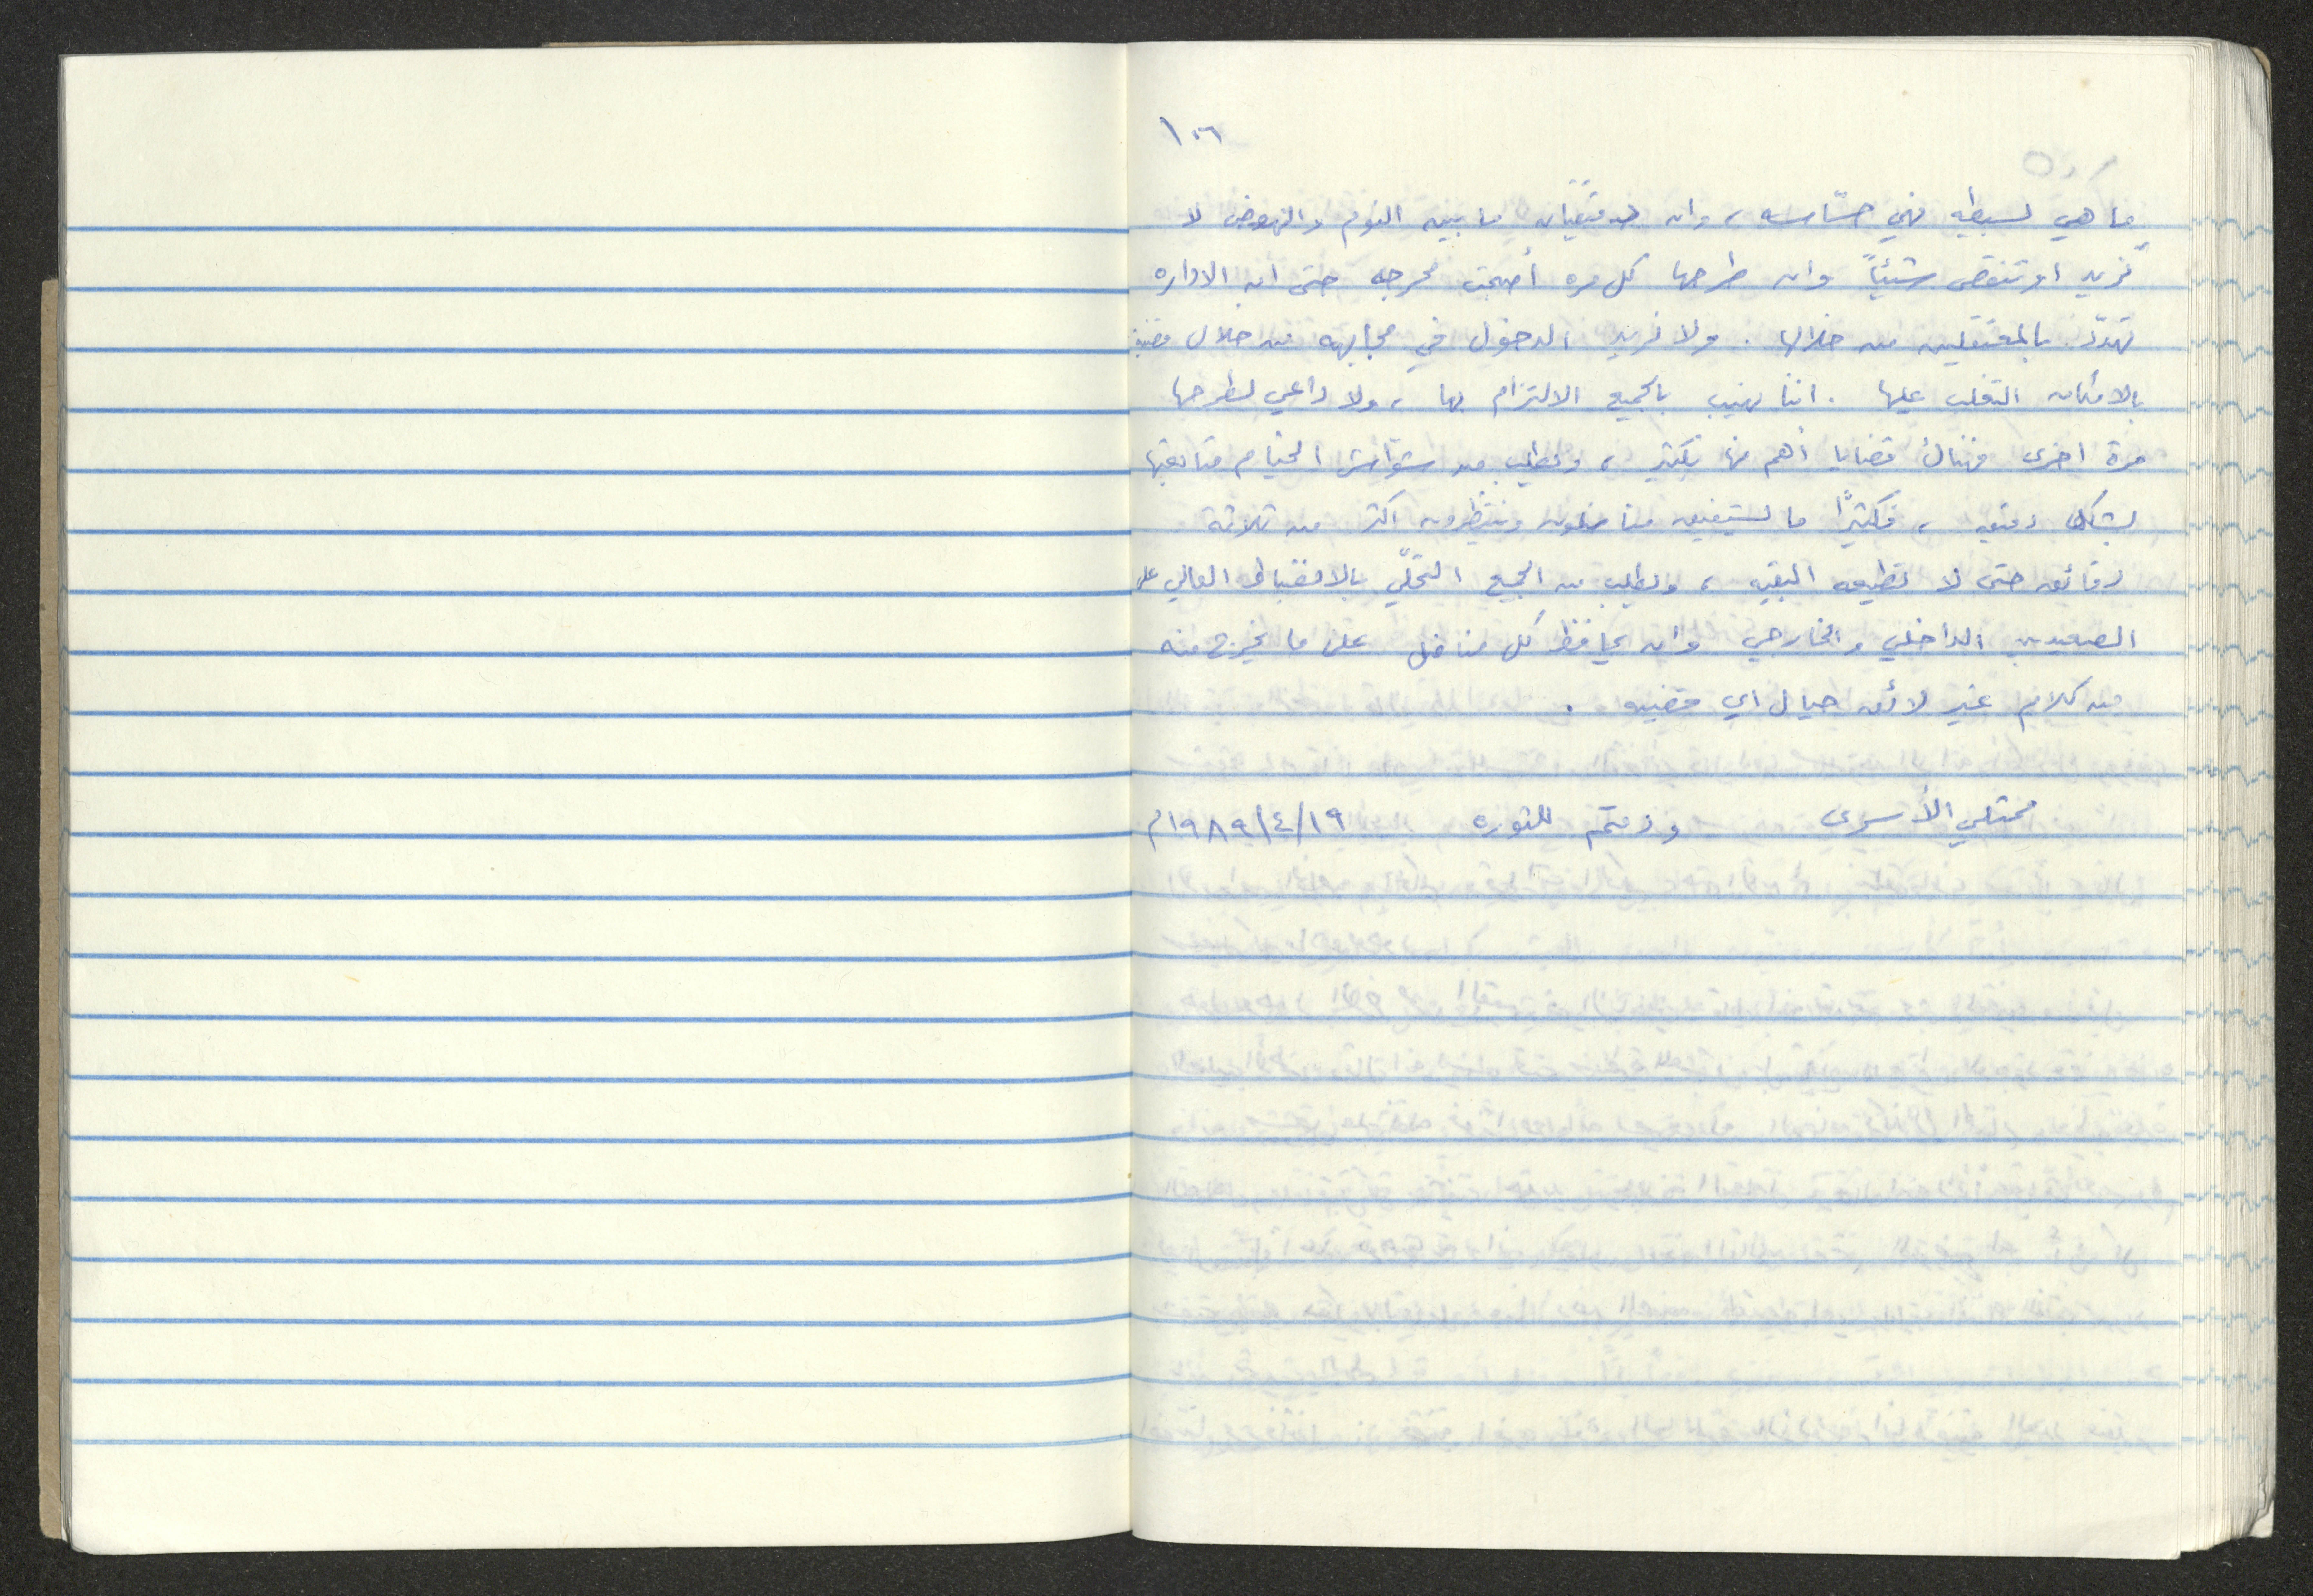 ١٠٦
ما هي بسيطه فهي حسّاسه ، وان دقيقتان ما بين النوم والنهوض لا
تزيد او تنقص شيئاً وان طرحها كل مره أصبحت محرجه حتى ان الاداره
تهدّد بالمعتقلين من خلالها . ولا نريد الدخول في مجابهه من خلال قضية
بالامكان التغلب عليها . اننا نهيب بالجميع الالتزام بها ، ولا داعي لطرحها
مرة اخرى فهناك قضايا أهم منها بكثير ، ونطلب من شواش الخيام متابعتها
بشكل دقيق ، فكثيرًا ما يستيقيض مناضلون وينتظرون اكثر من ثلاثة
دقائق حتى لا تطيعه البقيه ، ونطلب من الجميع التحلّي بالانضباط العالي على
الصعيدين الداخلي والخارجي وان يحافظ كل مناضل على ما يخرج منه
من كلام غير لائق حيال اي قضيه .
ممثلي الأسرى ودمتم للثوره ١٩٨٩/٤/١٩م